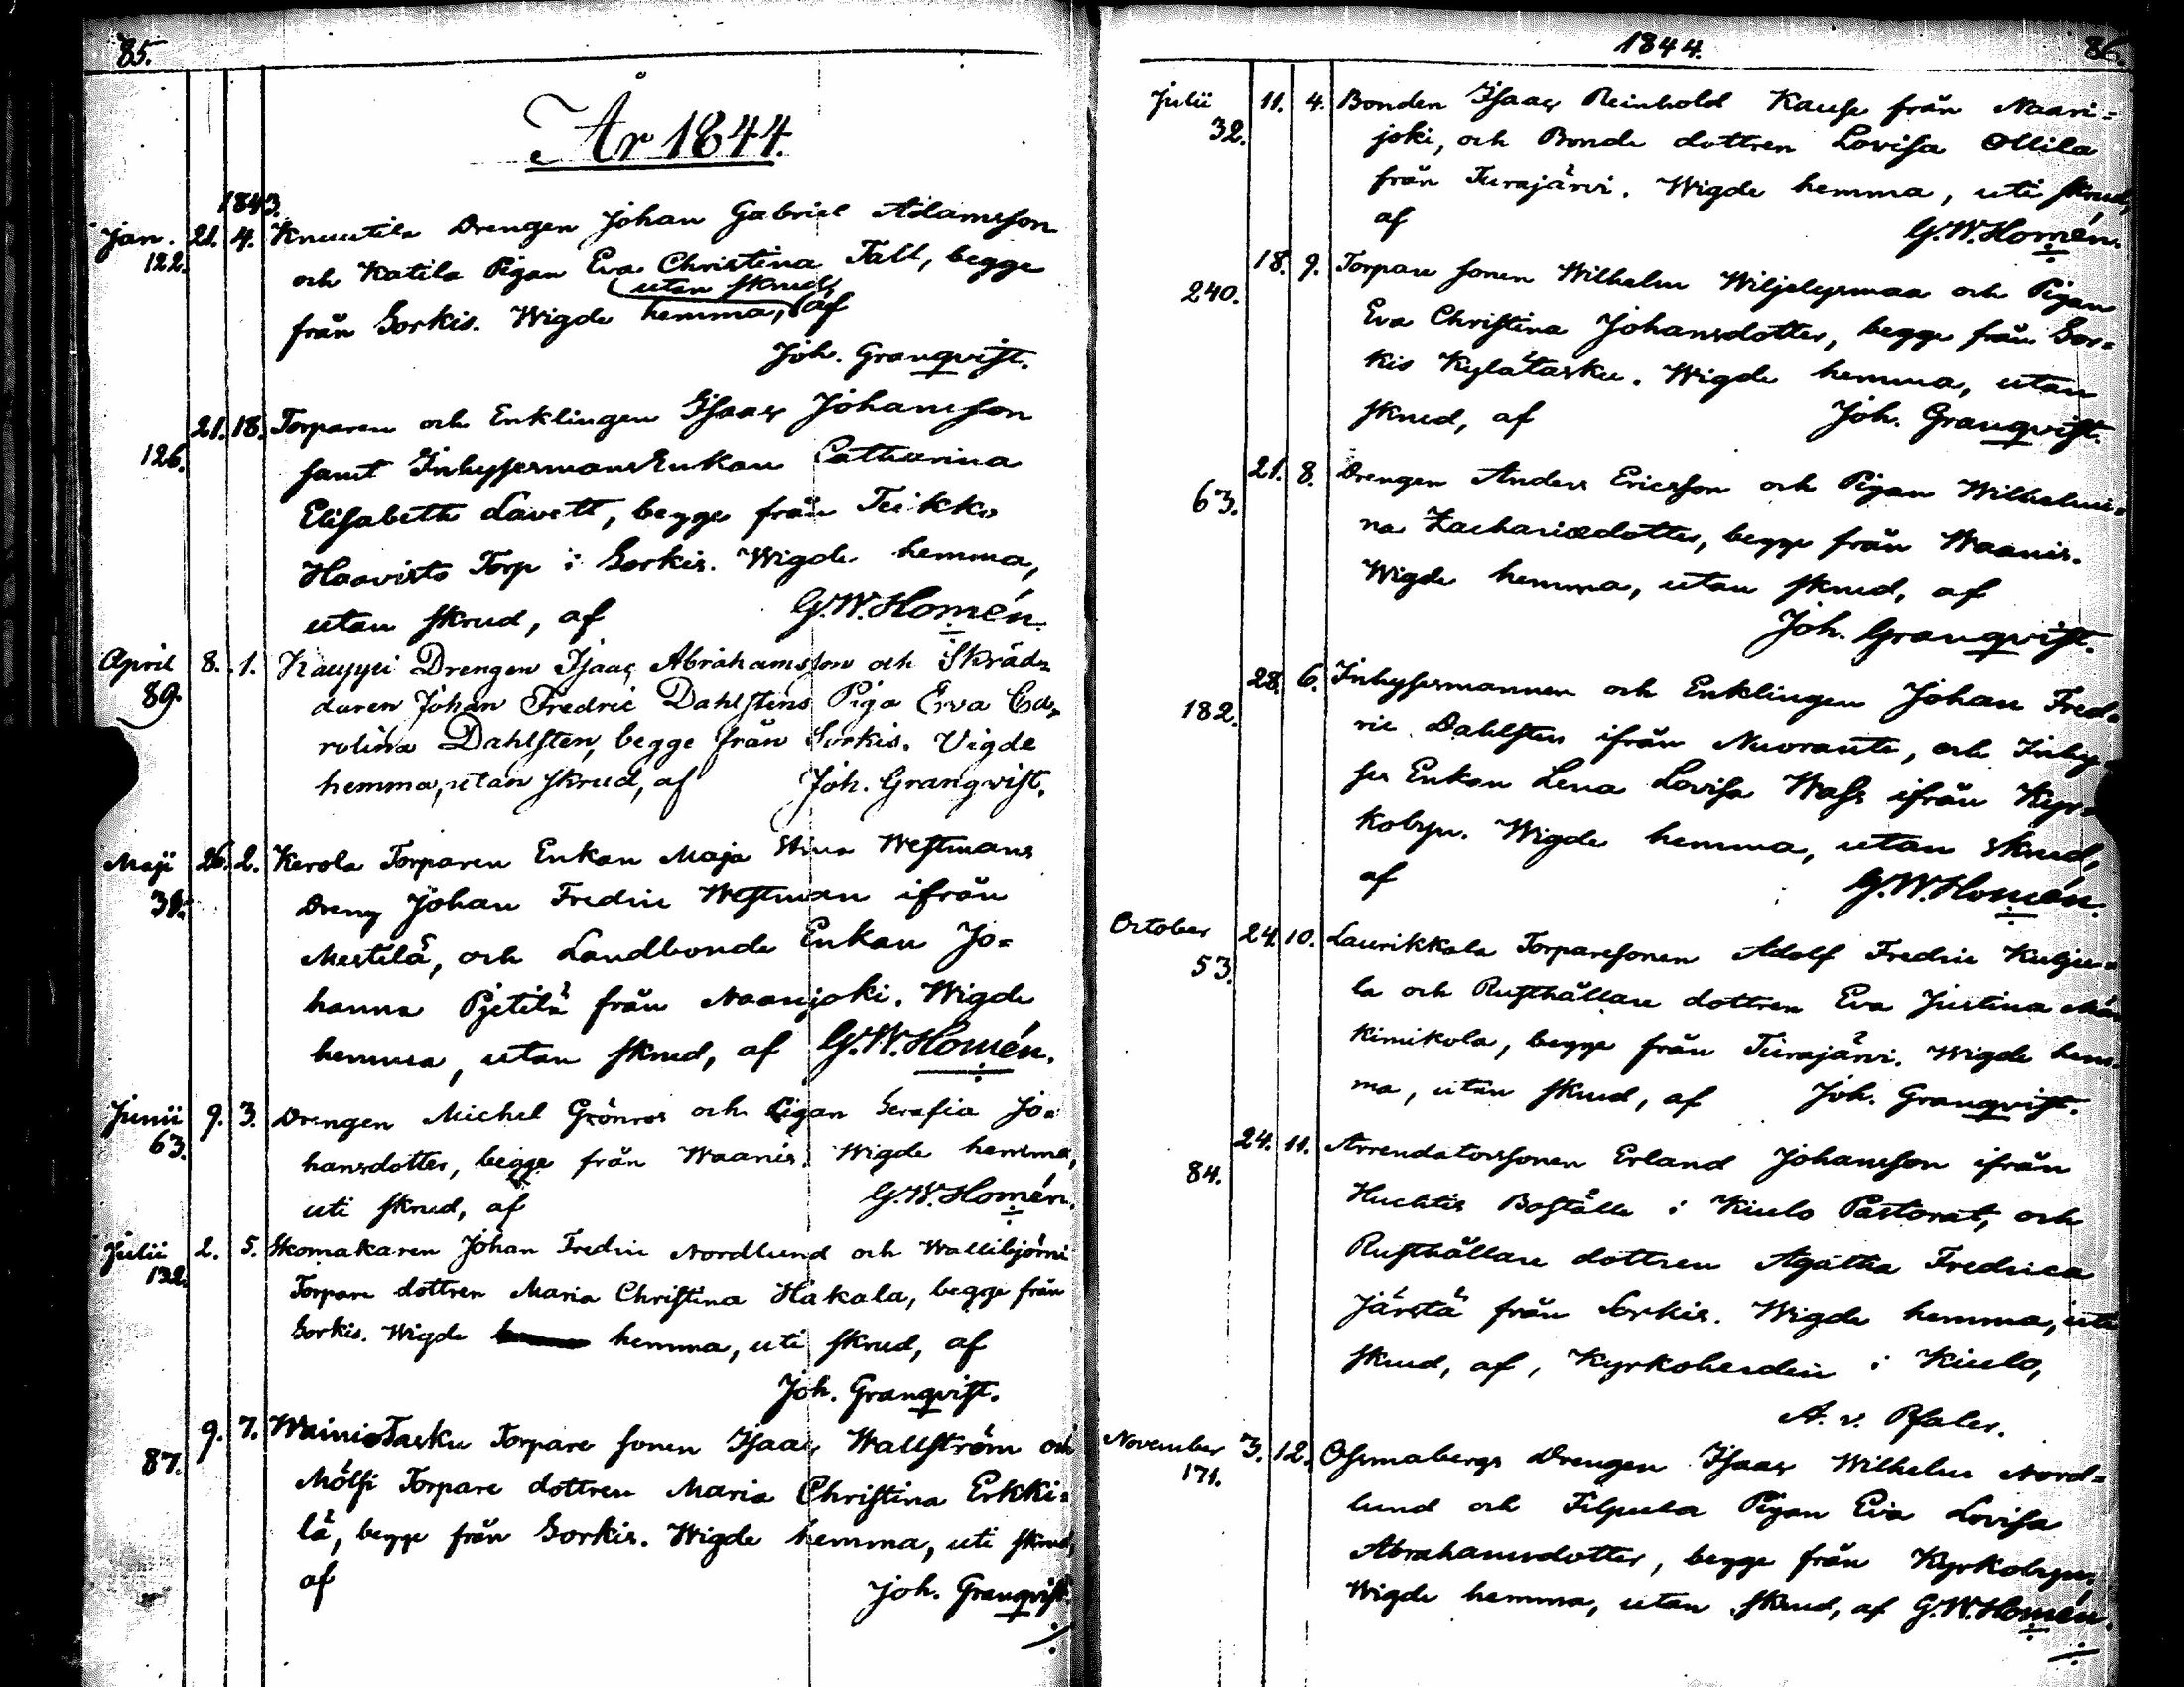 85.
År 1844.
1843.
Jan. 21. 4. Knuutila Drengen Johan Gabriel Adamsson
122. och Katila Pigan Eva Christina Tall, begge
utan skrud,
från Sorkis. Wigde hemma, af
Joh. Granqvist.
21. 18. Torparen och Enklingen Isaac Johansson
126. samt Inhysesmans Enkan Catharina
Elisabeth Lavett, begge från Teikko
Haavisto Torp i Sorkis. Wigde hemma,
utan skrud, af G. W. Homén.
April 8. 1. Kauppi Drengen Isaac Abrahamsson och Skräd-
89. daren Johan Fredric Dahlstens Piga Eva Ca-
rolina Dahlsten, begge från Sorkis. Vigde
hemma, utan skrud, af Joh. Granqvist.
Maji 26. 2. Kerola Torparen Enkan Maja Stina Westmans
38. Dreng Johan Fredric Westman ifrån
Mestilä, och Landbonde Enkan Jo-
hanna Pjetilä från Naarjoki. Wigde
hemma, utan skrud, af G. W. Homén.
Junii 9. 3. Drengen Michel Grönros och Pigan Serafia Jo-
63. hansdotter, begge från Waanis. Wigde hemma,
uti skrud, af G. W. Homén.
Julii 2. 5. Skomakaren Johan Fredric Nordlund och Wallibjörni
132. Torpare dottren Maria Christina Hakala, begge från
Sorkis. Wigde hemma, uti skrud, af
Joh. Granqvist.
9. 7. WainioTasku Torpare sonen Isaac Wallström och
87. Mölsi Torpare dottren Maria Christina Erkki-
lä, begge från Sorkis. Wigde hemma, uti skrud,
af Joh. Granqvist.
1844. 86.
Julii 11. 4. Bonden Isaac Reinhold Kause från Naari-
32. joki, och Bonde dottren Lovisa Ollila
från Turajärvi. Wigde hemma, uti skrud,
af G. W. Homén.
18. 9. Torpare sonen Wilhelm Wiljalysmaa och Pigan
240. Eva Christina Johansdotter, begge från Sor-
kis Kylätasku. Wigde hemma, utan
skrud, af Joh. Granqvist.
21. 8. Drengen Anders Ericsson och Pigan Wilhelmi-
63. na Zachariædotter, begge från Waanis.
Wigde hemma, utan skrud, af
Joh. Granqvist.
28. 6. Inhysesmannen och Enklingen Johan Fred-
182. ric Dahlsten ifrån Nuoranti, och Inhy-
ses Enkan Lena Lovisa Wass ifrån Kyr-
kobyn. Wigde hemma, utan skrud,
af G. W. Homén.
October 24. 10. Laurikkala Torparesonen Adolf Fredric Kulju-
53. la och Rusthållare dottren Eva Justina Män
kimikola, begge från Turajärvi. Wigde hem-
ma, utan skrud, af Joh. Granqvist.
24. 11. Arrendatorssonen Erland Johansson ifrån
84. Huchtis Boställe i Kiulo Pastorat, och
Rusthållare dottren Agatha Fredrica
Järstä från Sorkis. Wigde hemma, uti
skrud, af, Kyrkoherden i Kiulo,
A. v. Pfaler.
November 3. 12. Ossmabergs Drengen Isaac Wilhelm Nord-
171. lund och Filpula Pigan Eva Lovisa
Abrahamsdotter, begge från Kyrkobyn,
Wigde hemma, utan skrud, af G. W. Homén.